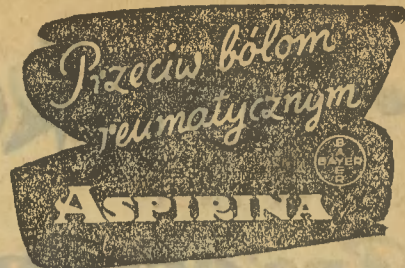 Przeciw bólom
reumatycznym
BAYER
BAYER
ASPIRINA